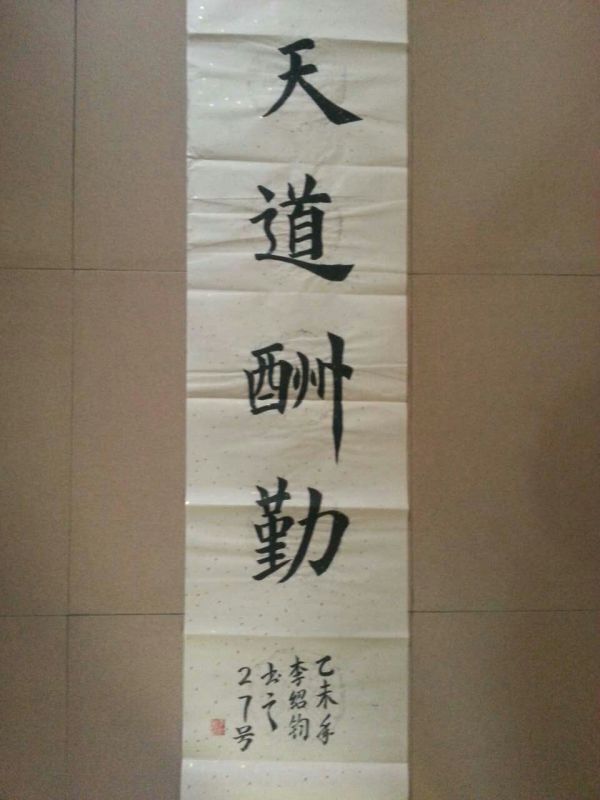 天道酬勤
乙未年
李绍钧
书之
27号